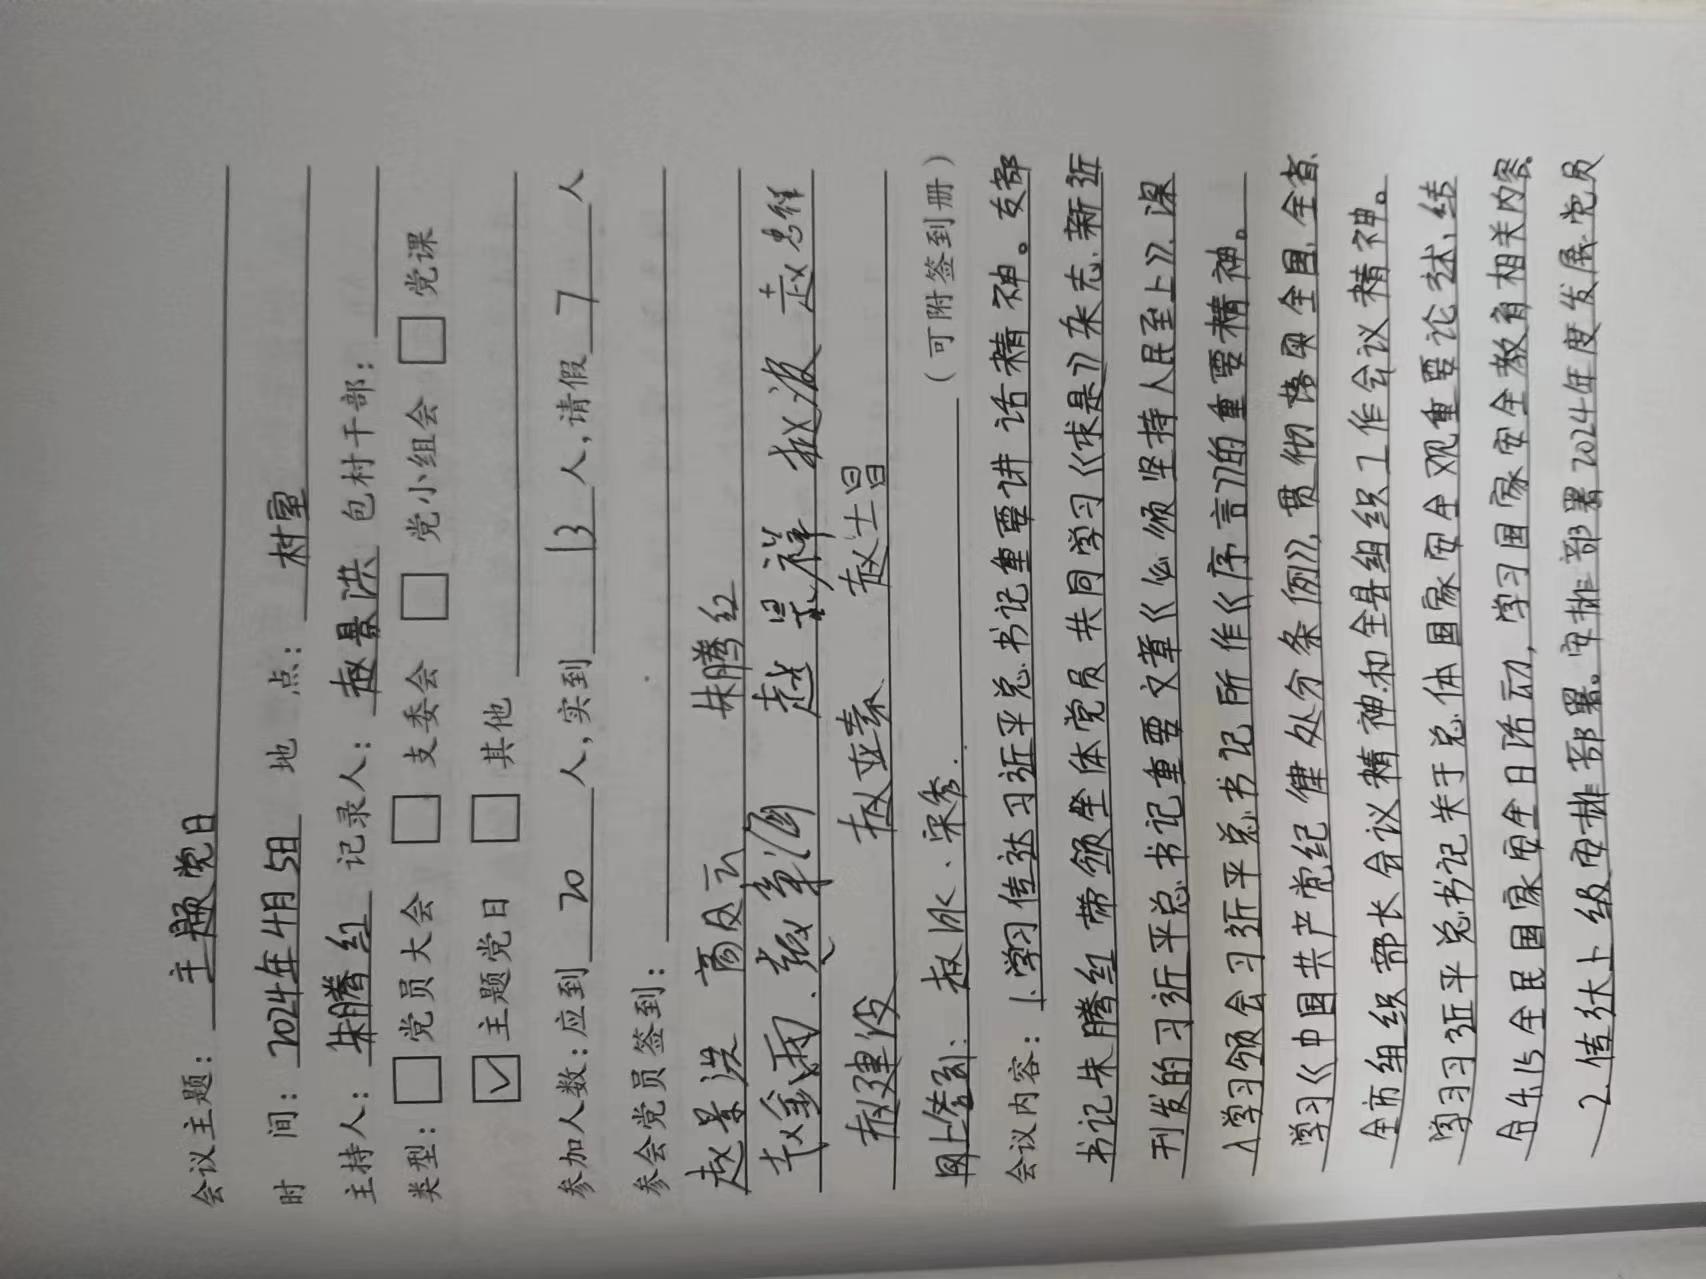 会议主题：主题党日
时 间：2024年4月5日 地 点：村室
主持人：朱腾红 记录人：赵景洪 包村干部：
类型：□党员大会 □支委会 □党小组会 □党课
☑主题党日 □其他
参加人数：应到 20 人，实到 13 人，请假 7 人
参会党员签到：
赵景洪 朱腾红
赵 景祥 赵波 赵
赵建设 赵亚泰 赵士昌
网上签到：赵冰、宋秀. （可附签到册）
会议内容：1.学习传达习近平总书记重要讲话精神。支部
书记朱腾红带领全体党员共同学习《求是》杂志、新近
刊发的习近平总书记重要文章《必须坚持人民至上》、深
入学习领会习近平总书记所作《序言》的重要精神。
学习《中国共产党纪律处分条例》，贯彻落实全国、全省、
全市组织部长会议精神和全县组织工作会议精神。
学习习近平总书记关于总体国家安全观重要论述，结
合4.15全民国家安全日活动，学习国家安全教育相关内容
2.传达上级安排部署。安排部署2024年度发展党员